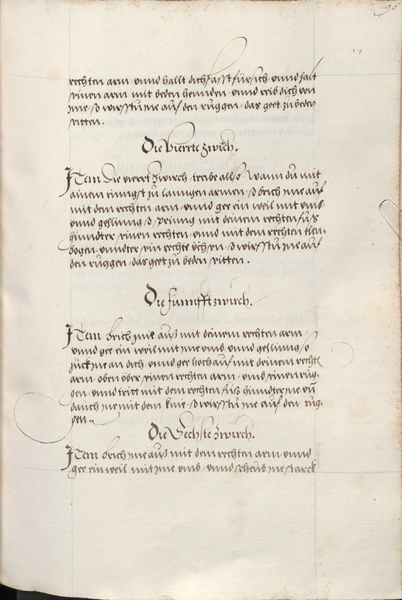 rechten arm vnnd hallt dich fasst für sich vnnd falt
seinen arm mit beden hennden vnnd reib dich von
ime so wirfstu ine auf den ruggen das geet zu beden
seitten.
Die Vierte zwirch.
Item Die viert zwirch treibe allso Wann du mit
ainem ringst zu lanngen armen so brich ine auß
mit dem rechten arm vnnd gee ein weil mit vmb
vnnd gehling so spring mit deinem rechten fuß
hinndter seinen rechten vnnd mit dem rechten elen
bogen vnndter sein rechte vchsen so wirfstu ine auf
den ruggen das geet zu beden seitten.
Die fünnfft zwirch.
Item brich ine auß mit deinem rechten arm
vnnd gee ein weil mit ime vmb vnnd gehling so
zuck ine an dich vnnd gee hoch auf mit deinem rechte
arm oben vber seinen rechten arm vmb seinen rug
gen vnnd tritt mit dem rechten fuß hinndter ine vn
dauch ine mit dem knie so wirfstu ine auf den rug
gen
Die Sechste zwirch.
Item brich ine auß mit dem rechten arm vnnd
gee ein weil mit ime vmb vnnd scheub ine starck